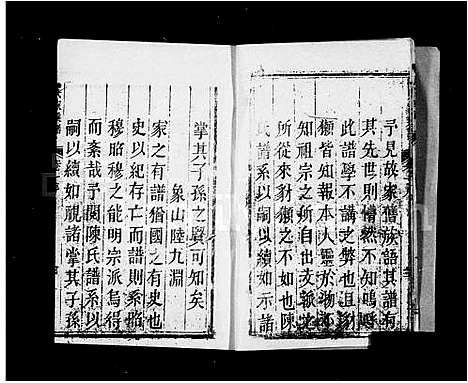 予見故家舊族語其譜有
其先世則懵然不知嗚呼
此譜學不講之弊也且豺
獺皆知報本人靈於物不
知祖宗之所自出支派之
所從來豺獺之不如也陳
氏譜系以嗣以續如示諸
掌其子孫之賢可知矣
象山陸九淵
家之有譜猶國之有史也
史以紀存亡而譜則系昭
穆昭穆之能明宗派烏得
而紊哉予閱陳氏譜系以
嗣以續如視諸掌其子孫